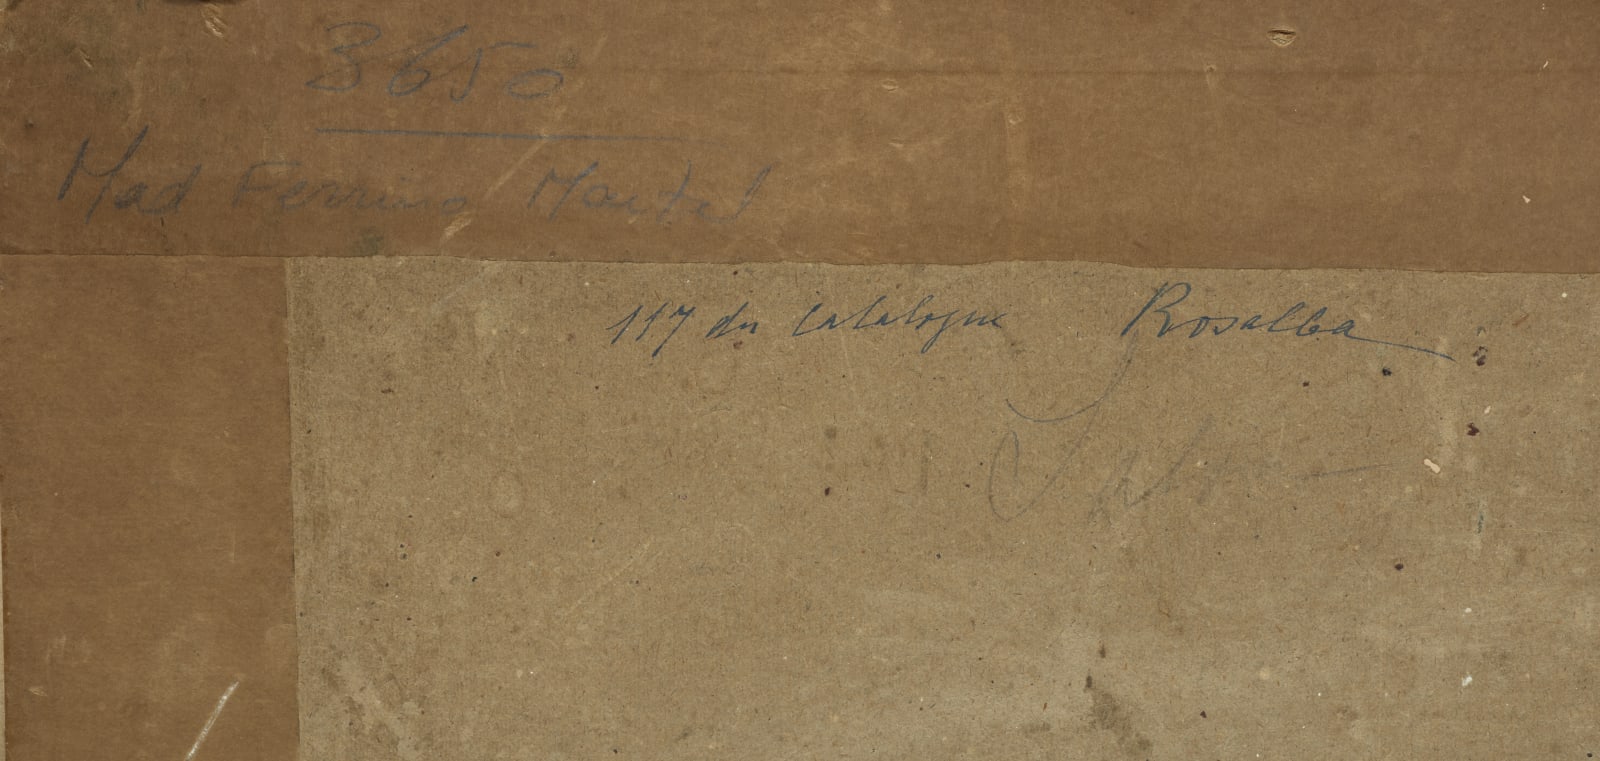 3650
Mad Ferrino Martel
117 du Catalogue Rosalba